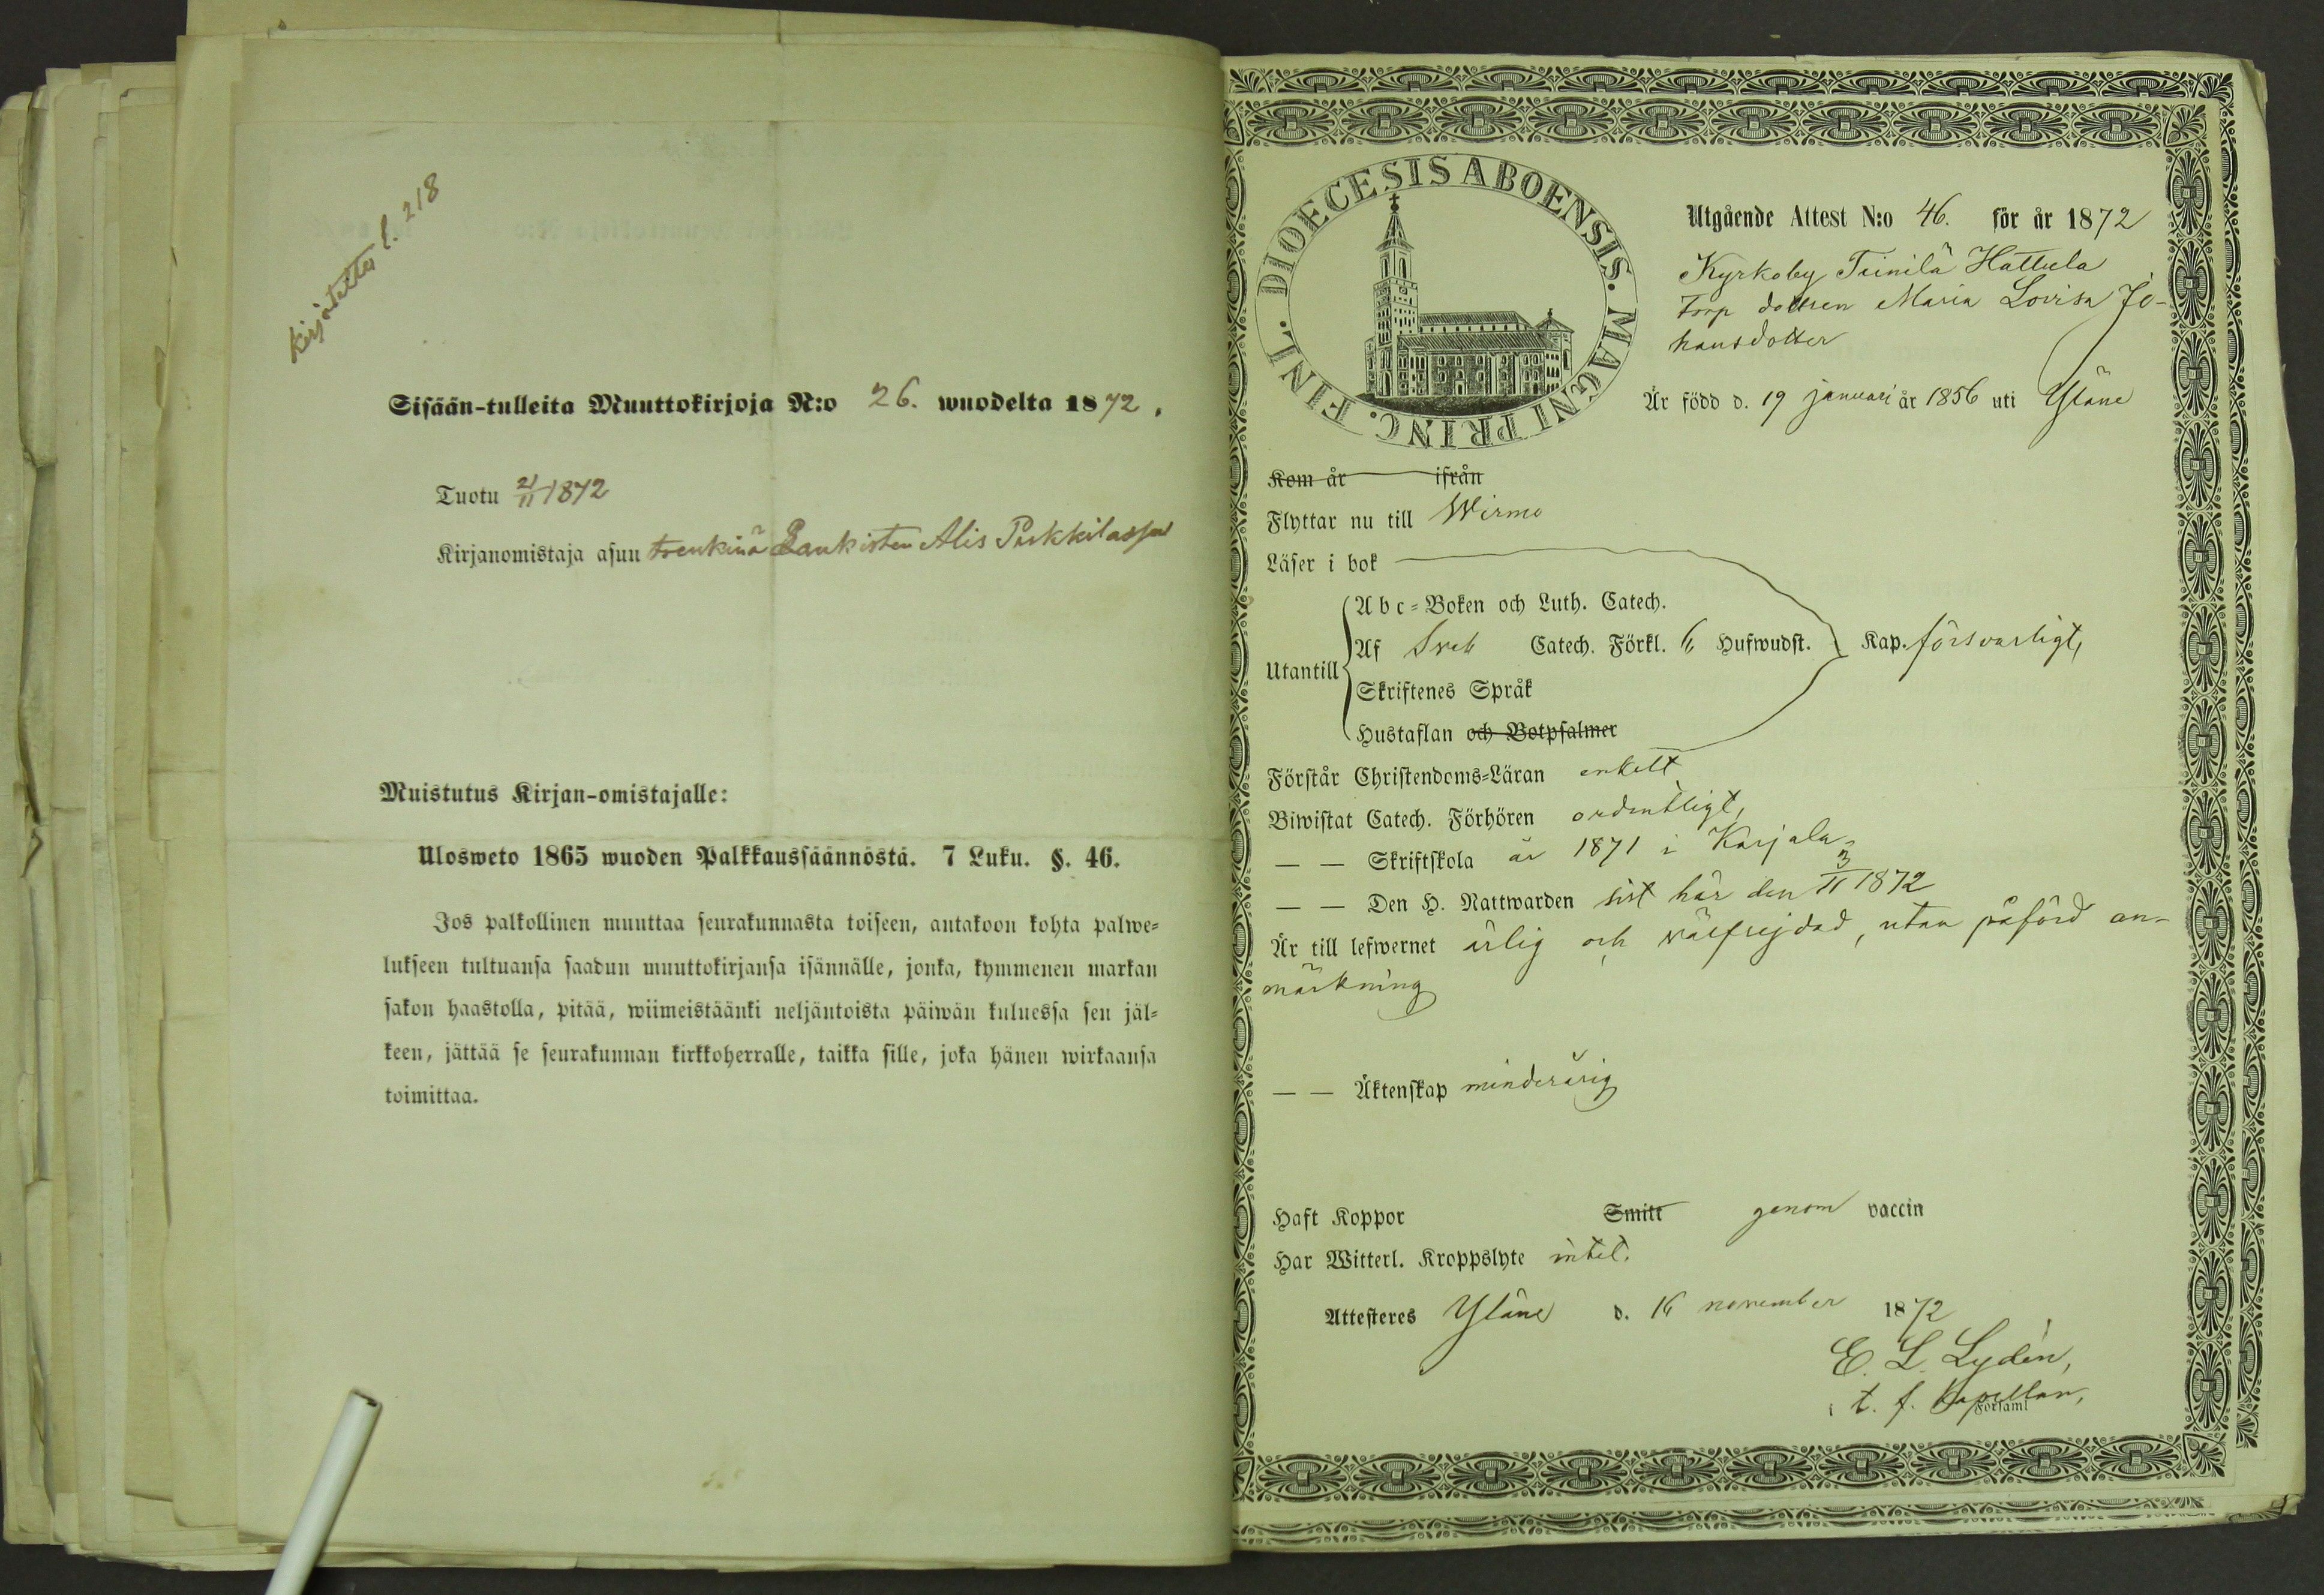 Kirjoitettu l. 218
Sisään-tulleita Muuttokirjoja N:o 26. wuodelta 1872.
Tuotu 21/11 1872
Kirjanomistaja asuu trenkinä Laukisten Alis Pirkkilassa
Muistutus Kirjan-omistajalle:
Ulosweto 1865 wuoden Palkkaussäännöstä. 7 Luku. §. 46.
Jos palkollinen muuttaa seurakunnasta toiseen, antakoon kohta palwe-
lukseen tultuansa saadun muuttokirjansa isännälle, jonka, kymmenen markan
sakon haastolla, pitää, wiimeistäänki neljäntoista päiwän kuluessa sen jäl-
keen, jättää se seurakunnan kirkkoherralle, taikka sille, joka hänen wirkaansa
toimittaa.
DIOECESIS ABOENSIS. MAGNI PRINC. FINL.
Utgående Attest N:o 46. för år 1872
Kyrkoby Hattula
Torp dottren Maria Lovisa Jo-
hansdotter
Är född d. 19 januari år 1856 uti Yläne
Kom år ifrån
Flyttar nu till Wirmo
Läser i bok
Abc-Boken och Luth. Catech.
Utantill Af Sveb Catech. Förkl. 6 Hufwudst. Kap. försvarligt,
Skriftenes Språk
Hustaflan och Botpsalmer
Förstår Christendoms-Läran enkelt
Biwistat Catech. Förhören ordentligt,
— — Skriftskola år 1871 i Karjala,
— — Den H. Nattwarden sist här den 3/11 1872
Är till lefwernet ärlig och välfrejdad, utan påförd an-
märkning
— — Äktenskap minderårig
Haft Koppor Smitt genom vaccin
Har Witterl. Kroppslyte intet.
Attesteres Yläne d. 16 november 1872
E. L. Lydén,
t. f. Kapellan,
Församl